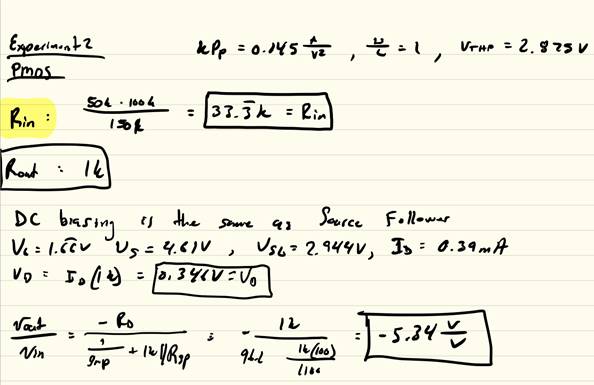 Experiment 2 kPp = 0.145 A/V², W/L = 1, VTHP = 2.875V
Pmos
Rin : 50k · 100k / 150k = 33.3̅k = Rin
Rout : 1k
DC biasing is the same as Source Follower
VG = 1.66V VS = 4.61V, VSG = 2.944V, ID = 0.39mA
VD = ID(1k) = 0.346V = VD
Vout/Vin = -RD / (1/gmp + 1k//Rsp) = - 1k / 1k(100) / 1100 = -5.34 V/V